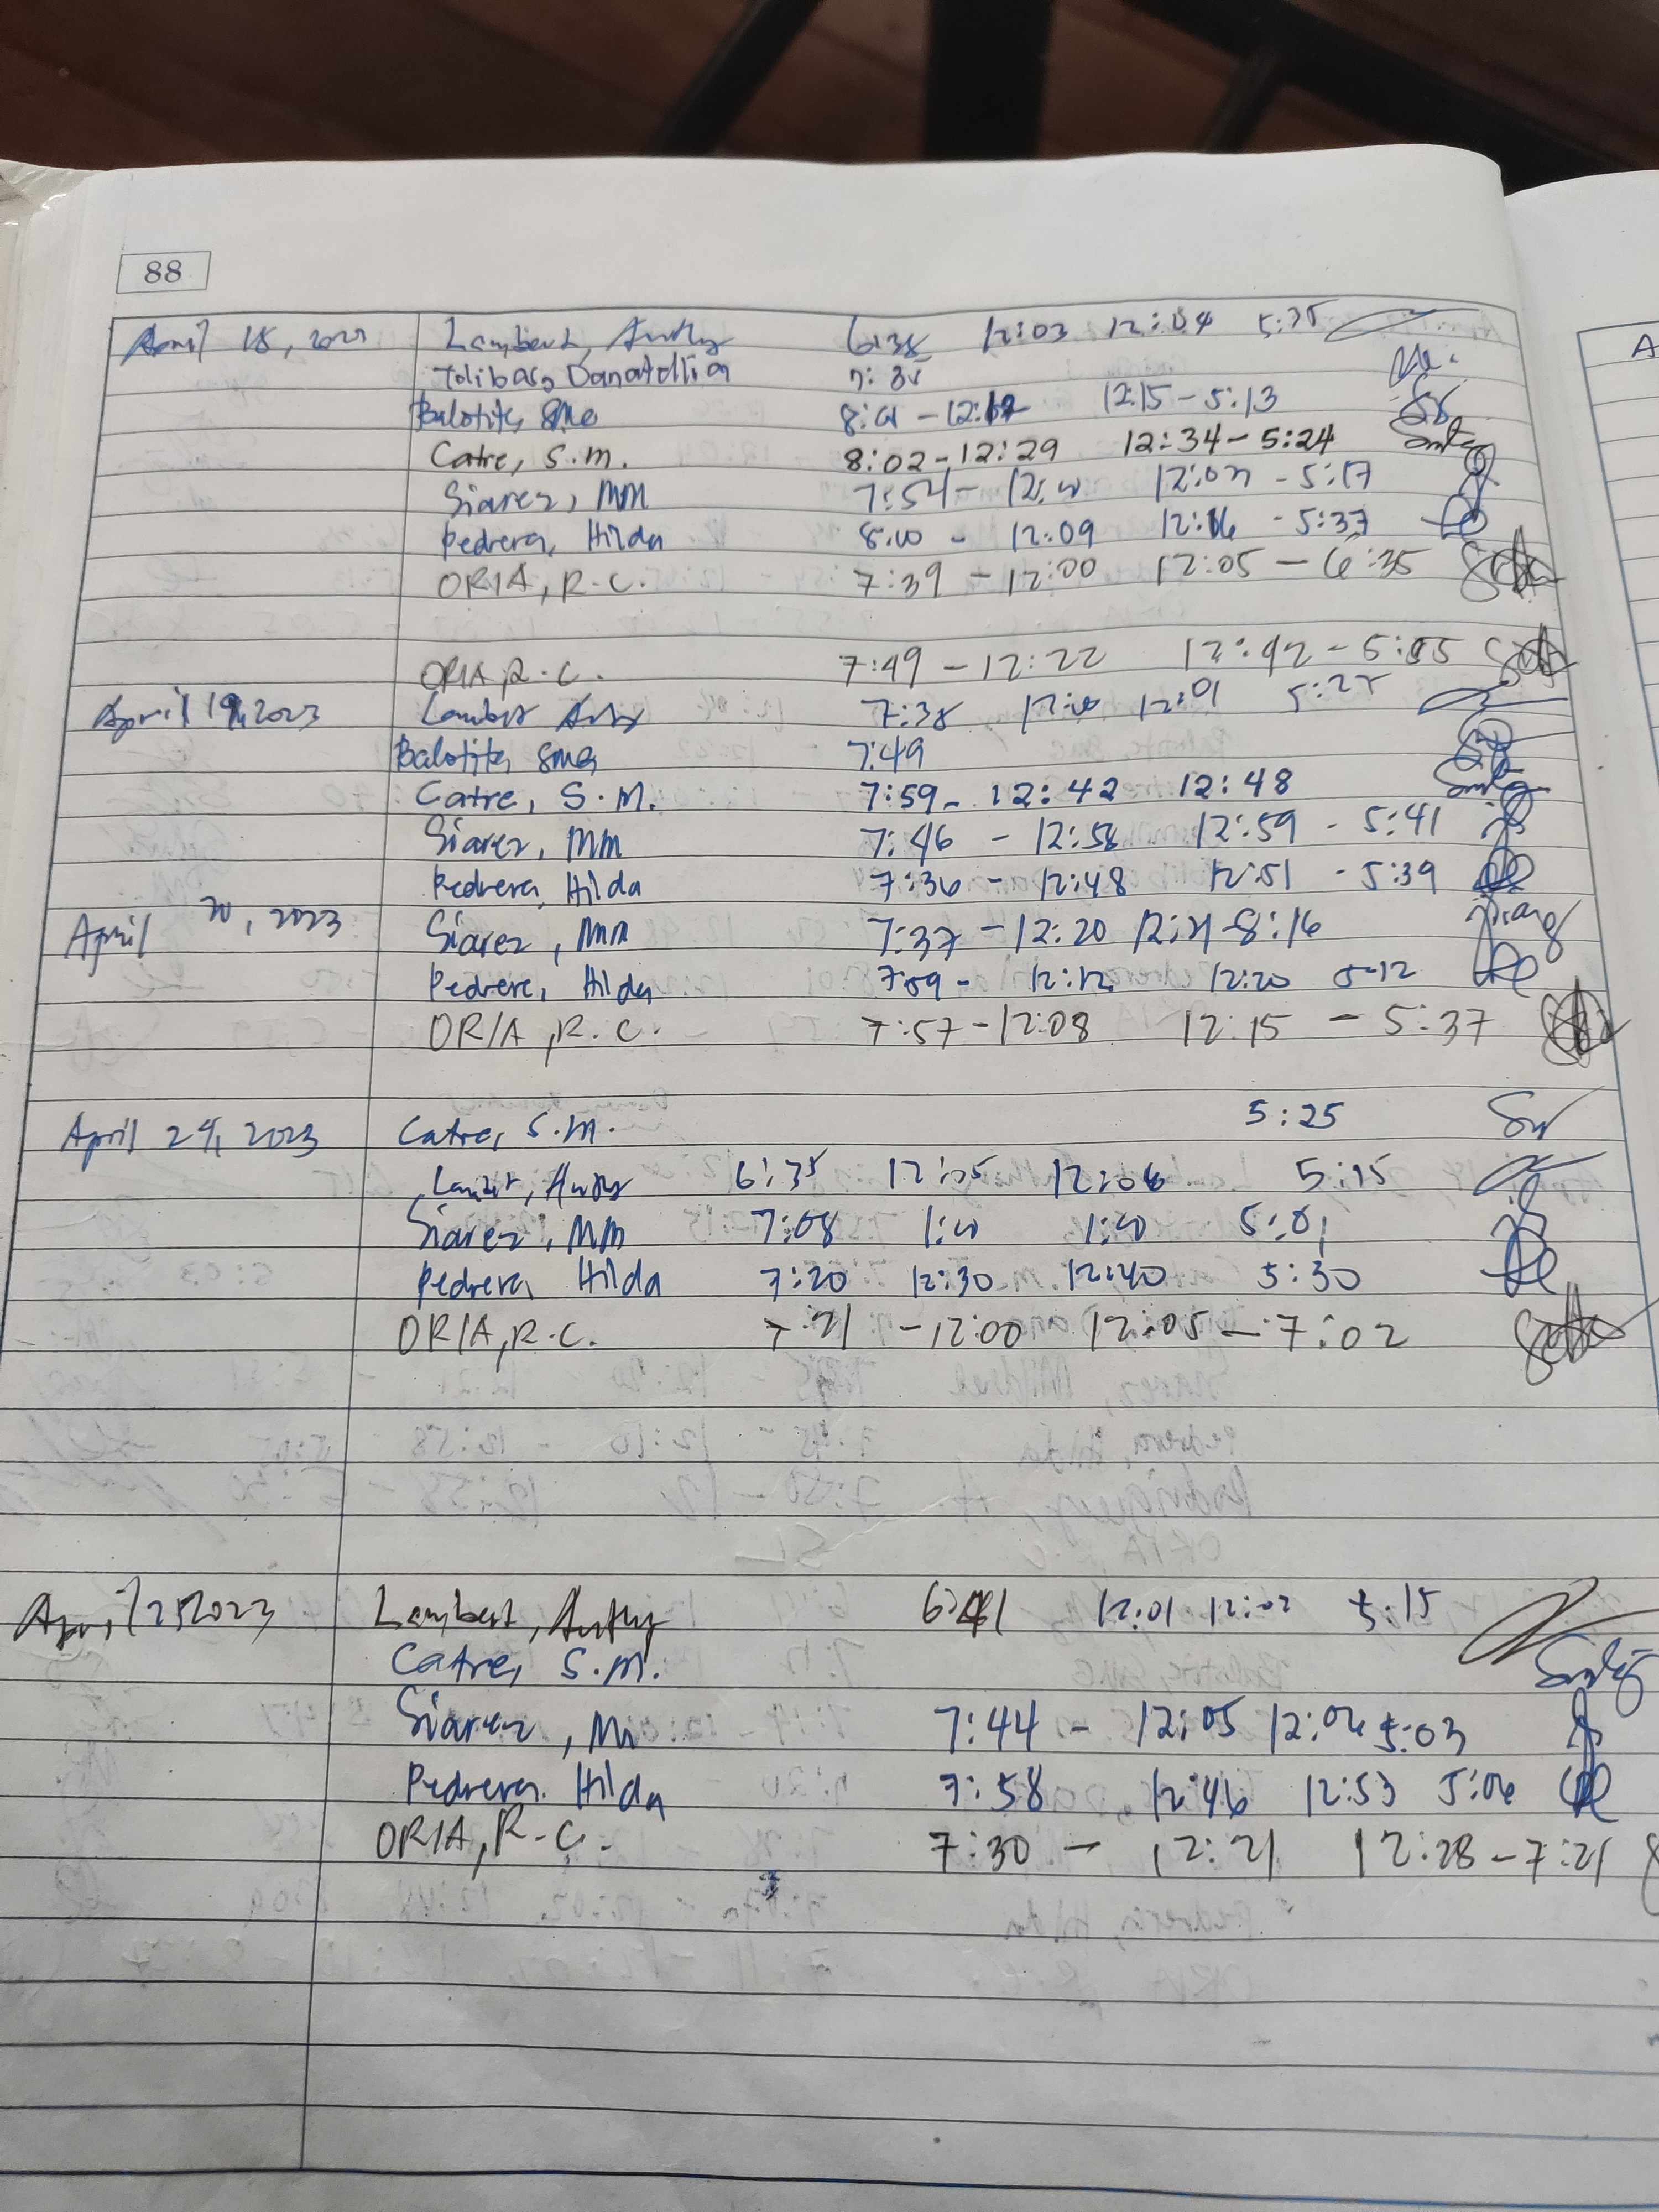 88
April 18, 2023 Lambert, 6:38 12:03 12:04 5:35
Tolibas, Danatellia 7:
Balotite, SMG 8:01 - 12:12 12:15 - 5:13
Catre, S.M. 8:02 - 12:29 12:34 - 5:24
Siarez, MM 7:54 - 12:00 12:01 - 5:17
Pedrera, Hilda 8:00 - 12:09 12:16 - 5:37
ORIA, R.C. 7:39 - 12:00 12:05 - 6:35
ORIA, R.C. 7:49 - 12:22 12:42 - 5:55
April 19, 2023 Lambert 7:38 12:00 12:01 5:22
Balotite, SMG 7:49
Catre, S.M. 7:59 - 12:42 12:48
Siarez, MM 7:46 - 12:58 12:59 - 5:41
Pedrera, Hilda 7:36 - 12:48 12:51 - 5:39
April 20, 2023 Siarez, MM 7:37 - 12:20 12:21 - 8:16
Pedrera, Hilda 7:59 - 12:12 12:20 5:12
ORIA, R.C. 7:57 - 12:08 12:15 - 5:37
April 24, 2023 Catre, S.M. 5:25
Lambert, 6:35 12:05 12:06 5:15
Siarez, MM 7:08 1:00 5:01
Pedrera, Hilda 7:20 12:30 12:40 5:30
ORIA, R.C. 7:21 - 12:00 12:05 - 7:02
April 25, 2023 Lambert, 6:41 12:01 12:02 5:15
Catre, S.M.
Siarez, M 7:44 - 12:05 12:06 5:03
Pedrera, Hilda 7:58 12:46 12:53 5:06
ORIA, R.C. 7:30 - 12:21 12:28 - 7:21